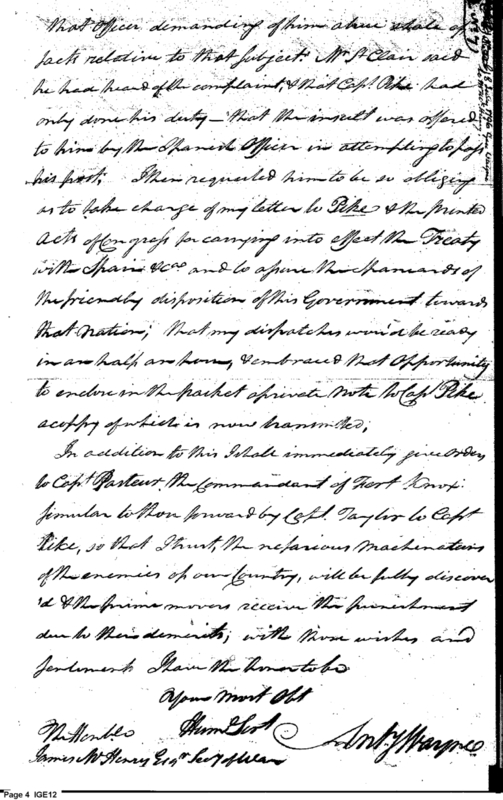 that Officer demanding of him a true state of
facts relative to that subject. Mr. St. Clair said
he had heard of the complaint, & that Capt. Pike had
only done his duty — that the insult was offered
to him by the Spanish Officer in attempting to pass
his post; I then requested him to be so obliging
as to take charge of my letter to Pike & the printed
acts of Congress for carrying into effect the Treaty
with Spain &ca and to assure the Spaniards of
the friendly disposition of this Government towards
that Nation; that my dispatches wou'd be ready
in an half an hour, & embraced that opportunity
to enclose in the packet a private note to Capt. Pike
a coppy of which is now transmitted,
In addition to this I shall immediately give orders
to Capt. Pasteur, the Commandant of Fort Knox
simular to those forward by Capt. Taylor to Capt
Pike, so that I trust, the nefarious machinations
of the enemies of our Country, will be fully discover
'd & the prime movers receive the punishment
due to their demerits; with those wishes and
sentiments I have the honor to be
Your Most Obt
Huml Sert
Anty Wayne
The Honble
James McHenry Esqr Secy of War
Page 4 IGE12